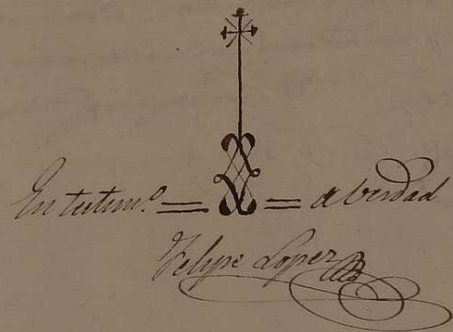 En testim.º = = de verdad
Felipe Lopez